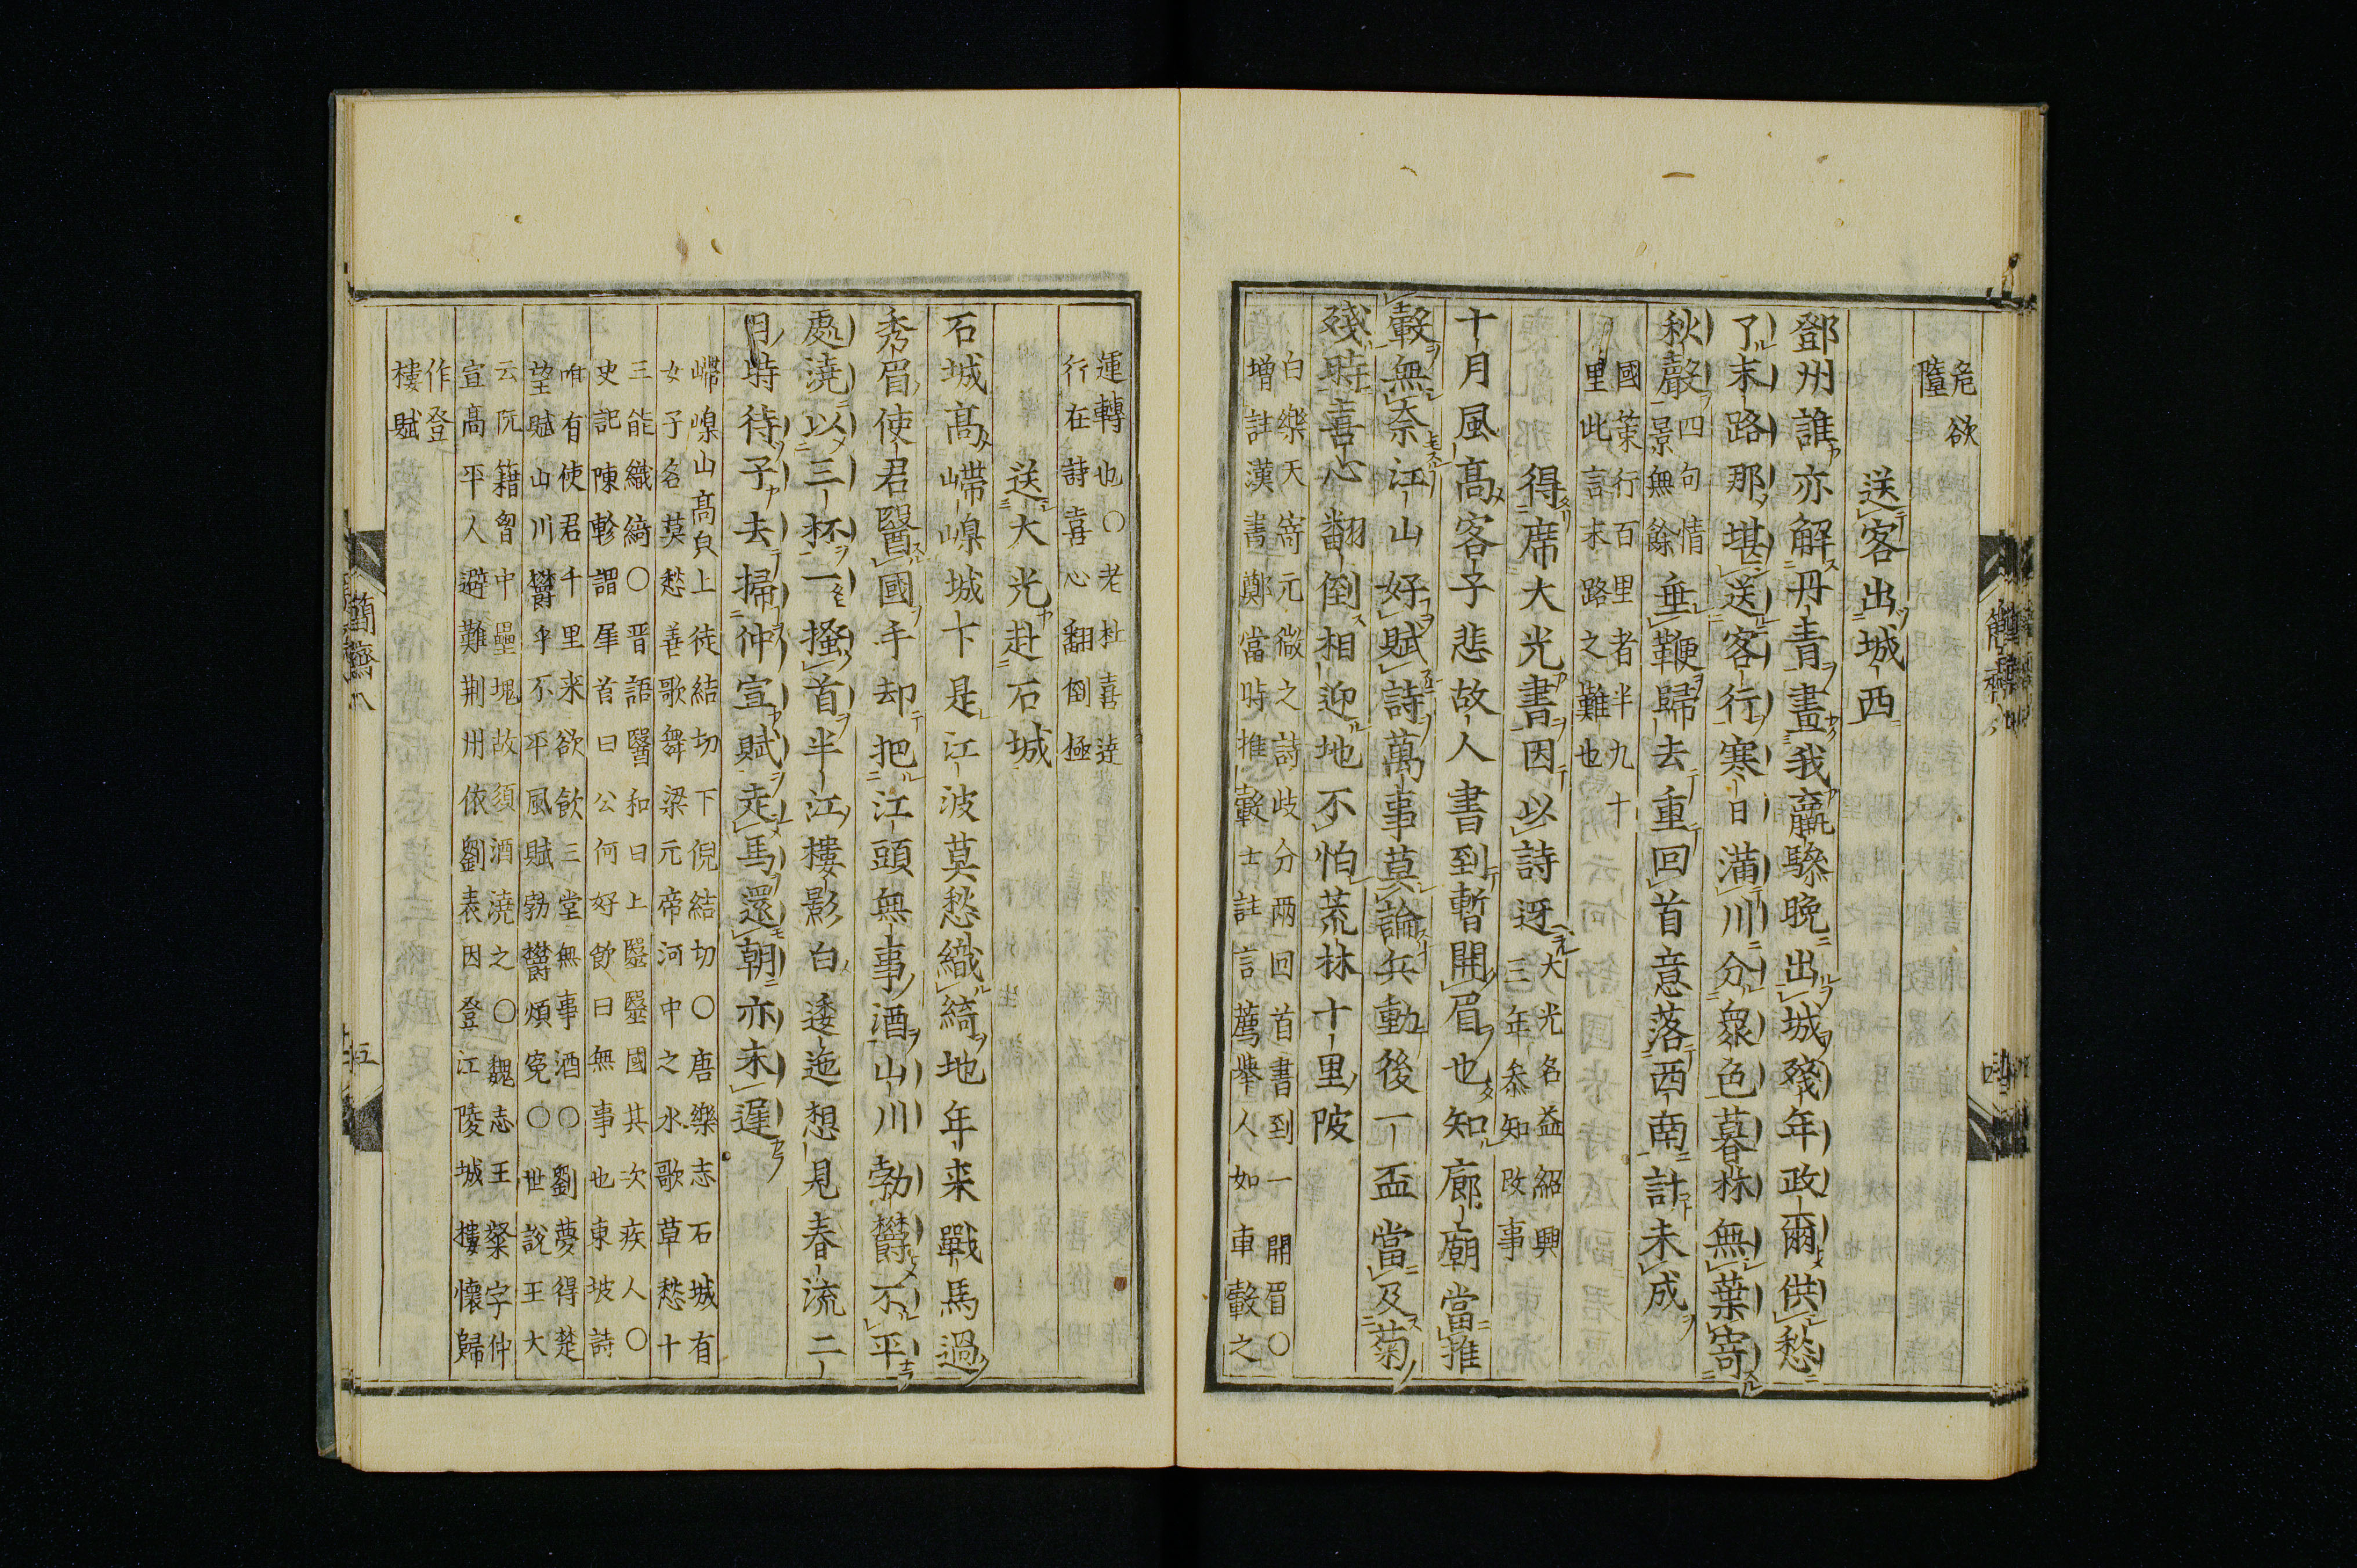 危欲
墮
送客出城西
鄧州誰亦解丹青畫我羸驂晚出城殘年政爾供愁
了末路那堪送客行寒日滿川分衆色暮林無葉寄
秋聲
四句情
景無餘
垂鞭歸去重回首意落西南計未成
國策行百里者半九十
里此言末路之難也
得席大光書因以詩迓
大光名益紹興
三年叅知政事
十月風高客子悲故人書到暫開眉也知廊廟當推
轂無奈江山好賦詩萬事莫論兵動後一盃當及菊
殘時喜心翻倒相迎地不怕荒林十里陂
白樂天寄元微之詩歧分兩回首書到一開眉〇
增註漢書鄭當時推轂士註言薦擧人如車轂之
運轉也〇老杜喜達
行在詩喜心翻倒極
送大光赴石城
石城高嵽嵲城下是江波莫愁織綺地年來戰馬過
秀眉使君醫國手却把江頭無事酒山川勃欝不平
處澆以三杯一搔首半江樓影白逶迤想見春流二
月時待子去掃仲宣賦走馬還朝亦未遲
嵽嵲山高皃上徒結切下倪結切〇唐樂志石城有
女子名莫愁善歌舞梁元帝河中之水歌草愁十
三能織綺〇晋語醫和曰上醫醫國其次疾人〇
史記陳軫謂犀首曰公何好飮曰無事也東坡詩
唯有使君千里來欲飮三堂無事酒〇劉夢得楚
望賦山川欝乎不平風賦勃欝煩寃〇世說王大
云阮籍胷中壘塊故須酒澆之〇魏志王粲字仲
宣高平人避難荆州依劉表因登江陵城樓懷歸
作登
樓賦
簡齋八
十五